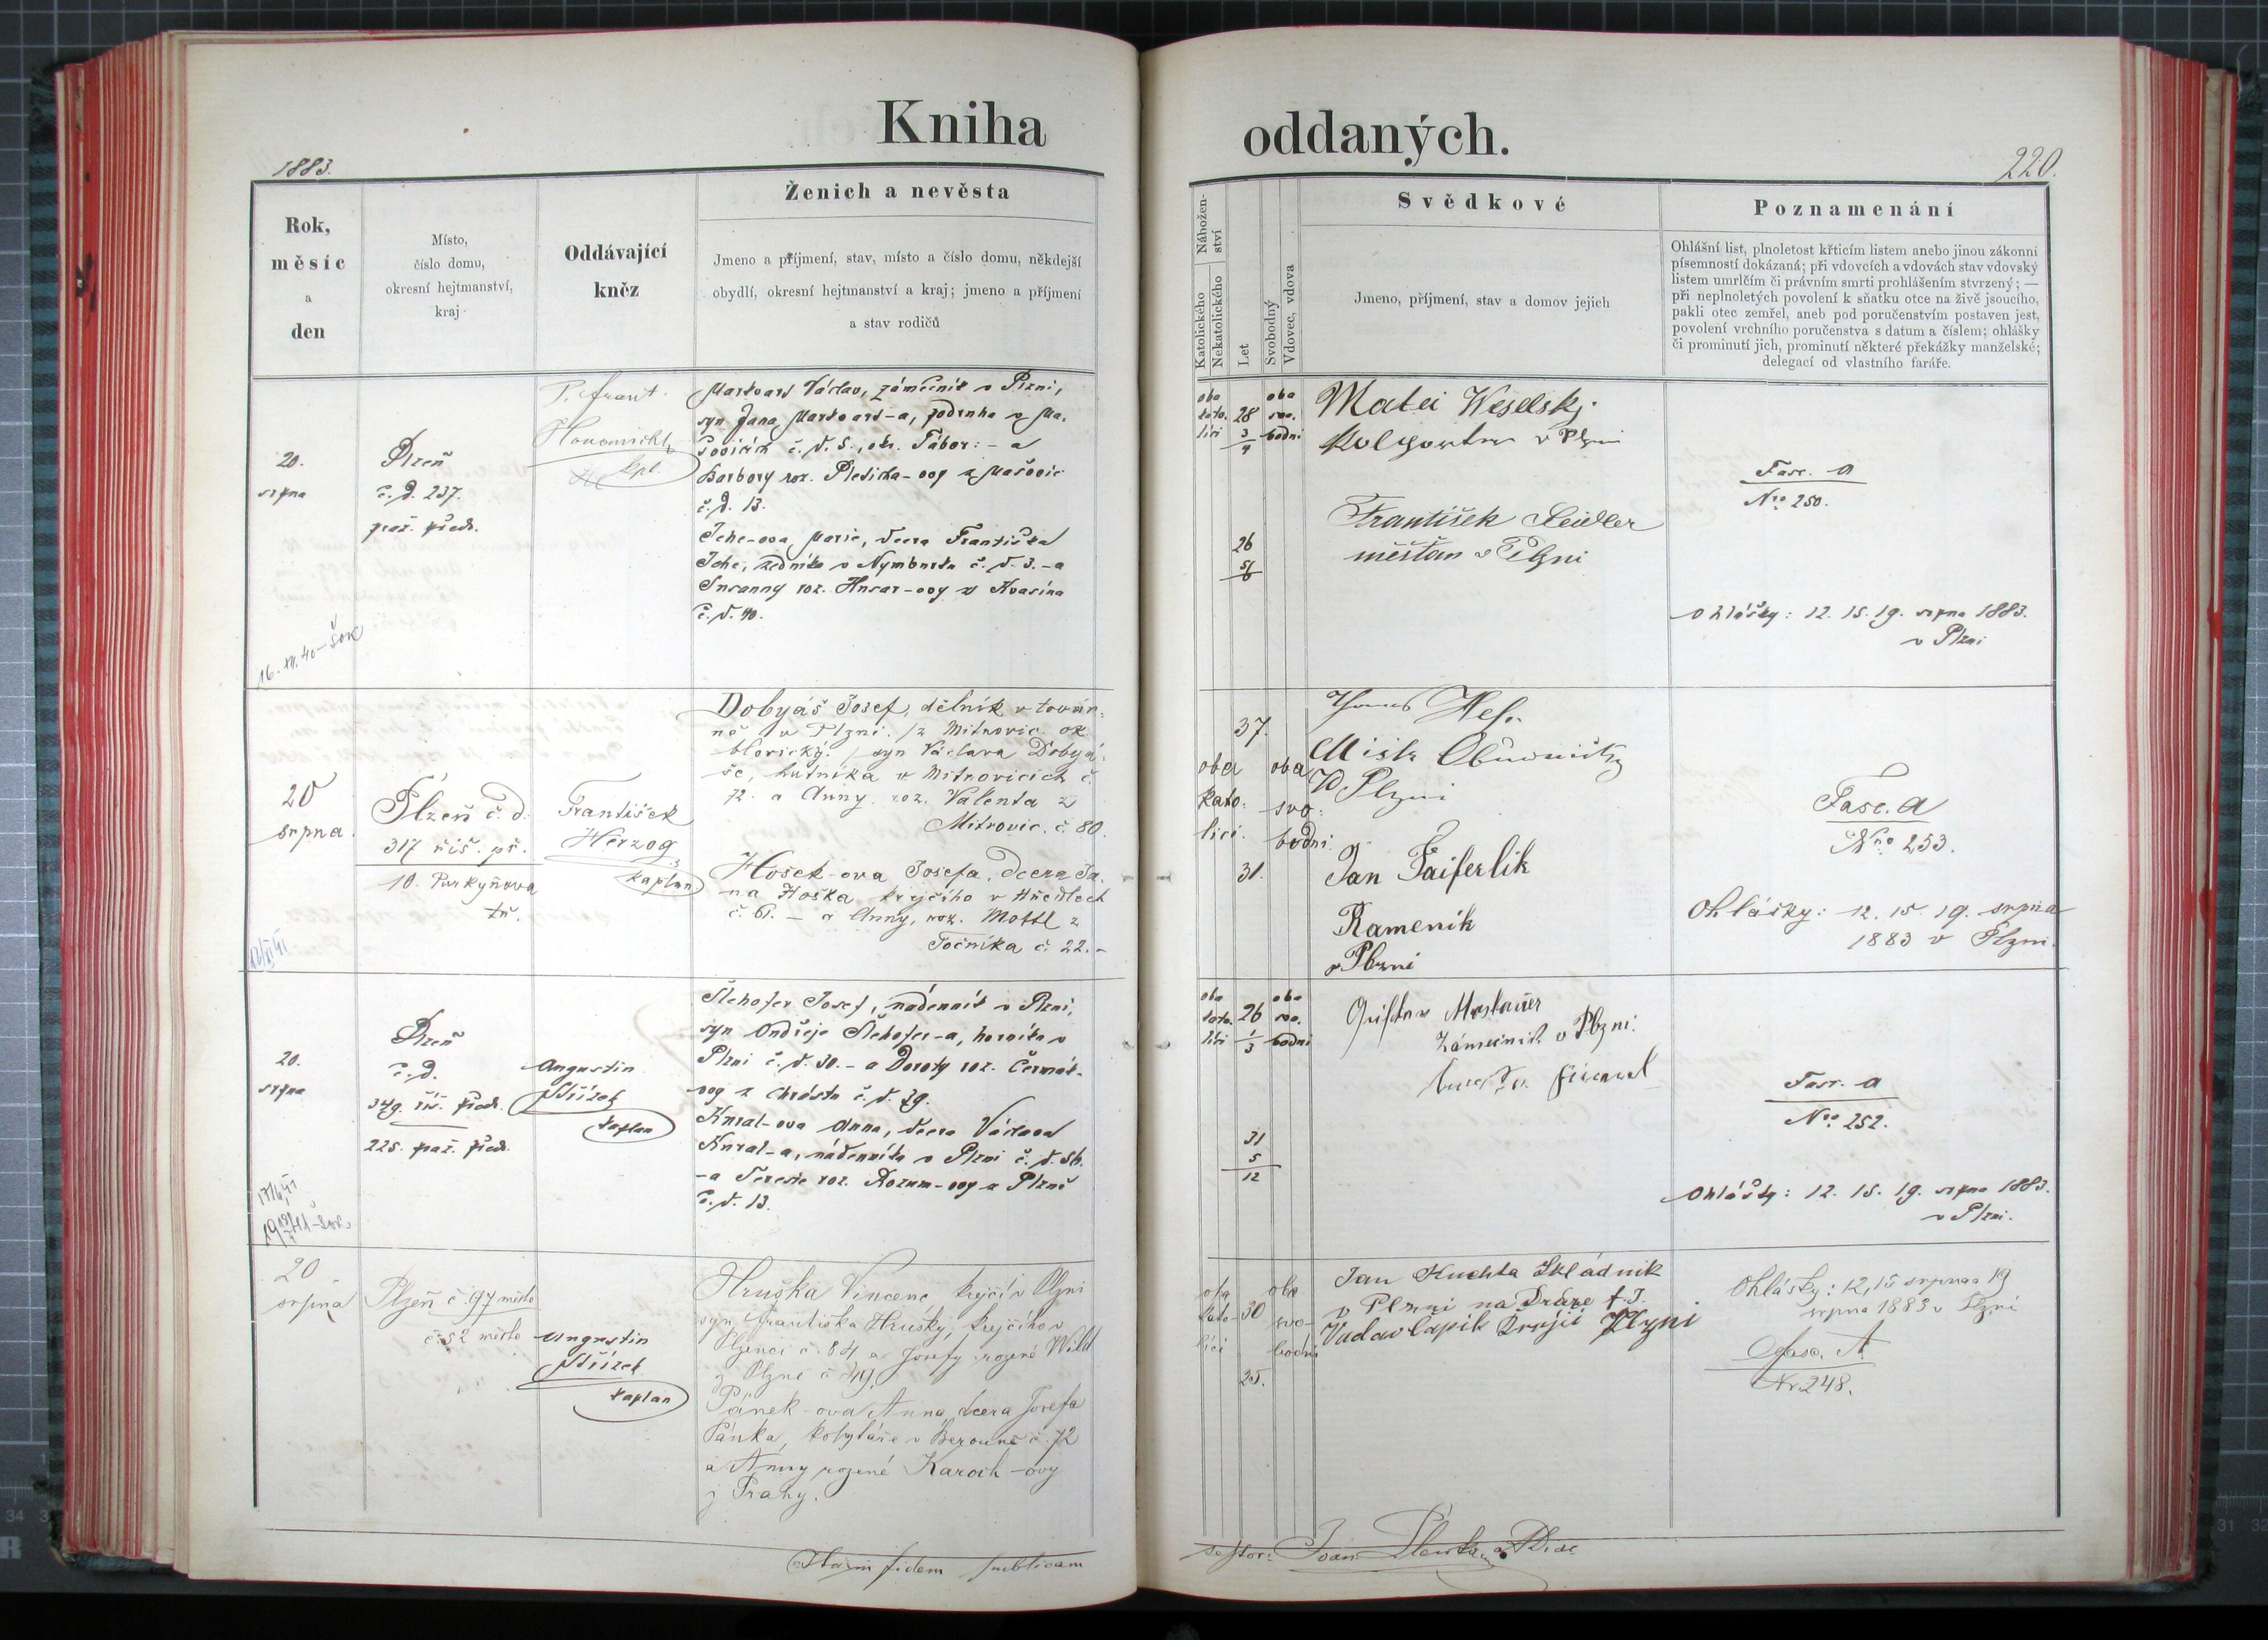 Kniha
oddaných.
1883.
220.
Rok,
měsíc
a
den
Místo,
číslo domu,
okresní hejtmanství,
kraj
Oddávající
kněz
Ženich a nevěsta
Jmeno a příjmení, stav, místo a číslo domu, někdejší
obydlí, okresní hejtmanství a kraj; jmeno a příjmení
a stav rodičů
Nábožen-
ství
Katolického
Nekatolického
Let
Svobodný
Vdovec, vdova
Svědkové
Jmeno, příjmení, stav a domov jejich
Poznamenání
Ohlášní list, plnoletost křticím listem anebo jinou zákonní
písemností dokázaná; při vdovcích a vdovách stav vdovský
listem umrlčím či právním smrti prohlášením stvrzený; —
při neplnoletých povolení k sňatku otce na živě jsoucího,
pakli otec zemřel, aneb pod poručenstvím postaven jest,
povolení vrchního poručenstva s datum a číslem; ohlášky
či prominutí jich, prominutí některé překážky manželské;
delegací od vlastního faráře.
20.
srpna
Plzeň
č. d. 237.
praž. předm.
P. Frant.
kpl.
Markvart Václav, zámečník v Plzni,
syn Jana Markvart-a, podruha v Ma-
šovicích č. d. 5., okr. Tábor: - a
Barbory roz. Pleticha-ovy z Mašovic
č. d. 13.
Iche-ova Marie, dcera Františka
Iche, zedníka v Nymburku č. d. 3. - a
Susanny roz. Husar-ovy z Kvasina
č. d. 40.
oba
kato-
líci
28
3
4
oba
svo-
bodni
26
5
6
Matei Weselský
v Plzni
František Seidler
měšťan v Plzni
Fasc. A
Nro 250.
Ohlášky: 12. 15. 19. srpna 1883.
v Plzni
16. XII. 40 - Šok
20
srpna.
Plzeň č. d.
317 říš. př.
10. Purkyňova
tř.
František
Herzog,
kaplan
Dobyáš Josef, dělník v továr-
ně v Plzni. /z Mitrovic ok.
syn Václava Dobyá-
še, hutníka v Mitrovicích č.
72. a Anny roz. Valenta z
Mitrovic č. 80.
Hošek-ova Josefa, dcera Ja-
na Hoška krejčího v Hředlech
č. 61. - a Anny, roz. Mottl z
Točníka č. 22. -
37.
oba
kato-
líci.
oba
svo-
bodni.
31.
V Plzni
Jan Faiferlik
Kameník
v Plzni
Fasc. A
Nro 253.
Ohlášky: 12. 15. 19. srpna
1883 v Plzni.
20.
srpna
Plzeň
č. d.
349. říš. předm.
225. praž. předm.
Augustin
Střízek
kaplan
Šlehofer Josef, nádenník v Plzni,
syn Ondřeje Šlehofer-a, horníka v
Plzni č. d. 30. - a Doroty roz. Čermák-
ovy z Chrástu č. d. 79.
Kural-ova Anna, dcera Václava
Kural-a, nádenníka v Plzni č. d. 56.
- a Terezie roz. Rozum-ovy z Plzně
č. d. 13.
oba
kato-
líci
26
1
3
oba
svo-
bodni
31
5
12
zámečník v Plzni.
Fasc. A
Nro. 252.
Ohlášky: 12. 15. 19. srpna 1883.
v Plzni.
20
srpna
Plzeň č. 97 město
č. 52 město
Augustin
Střízek
kaplan
Hruška Vincenc krejčí v Plzni
syn Františka Hrušky, krejčího v
Plzenci č. 84 a Josefy rozené Wild
z Plzně č. 49.
Pánek-ova Anna, dcera Josefa
Pánka, v Berouně č. 72
a Anny rozené Karoch-ovy
z Prahy.
oba
kato-
líci
30
oba
svo-
bodni
25.
Jan Kuchta Skládnik
v Plzni na Dráze f. J.
Krejčí Plzni
Ohlášky: 12, 15 srpna a 19
srpna 1883 v Plzni
Fasc. A
Nr. 248.
fidem publicam